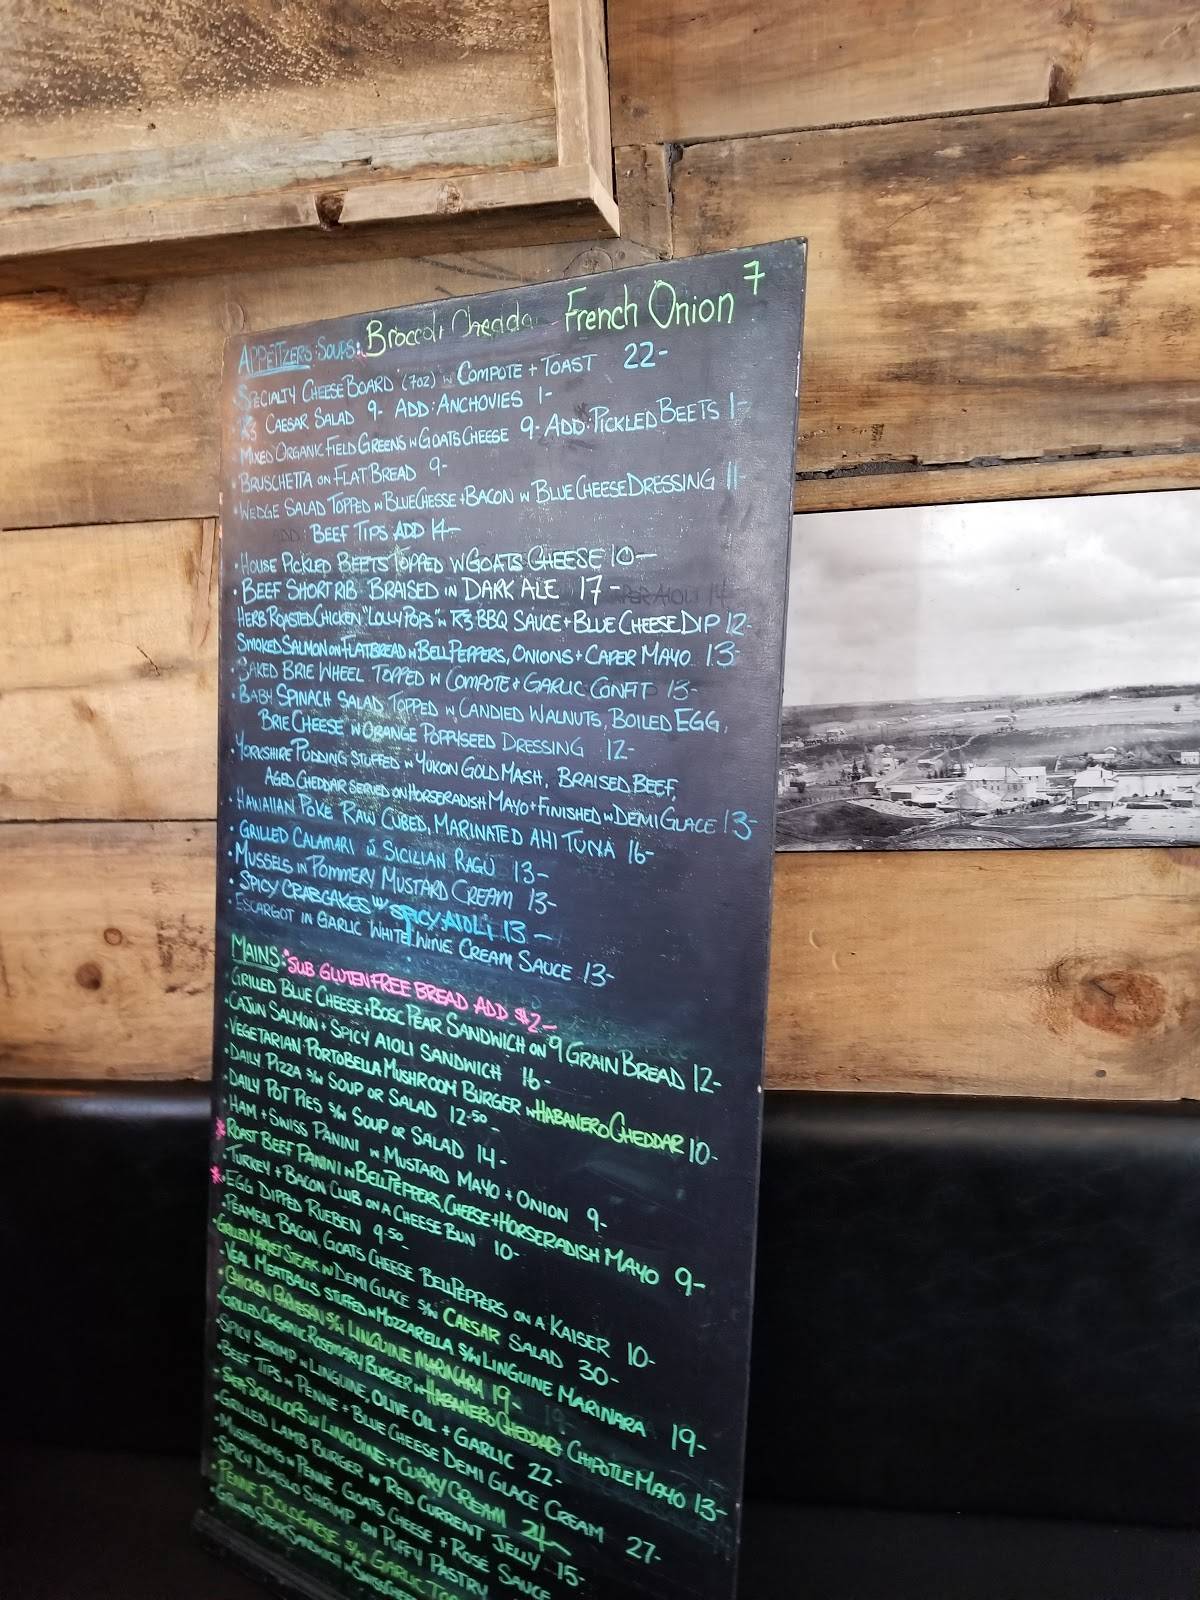 APPETIZERS: SOUPS: Broccoli Chedda French Onion 7
• SPECIALTY CHEESE BOARD (7OZ) W COMPOTE + TOAST 22-
R3 CAESAR SALAD 9- ADD: ANCHOVIES 1-
MIXED ORGANIC FIELD GREENS W GOATS CHEESE 9- ADD: PICKLED BEETS 1-
• BRUSCHETTA ON FLAT BREAD 9-
• WEDGE SALAD TOPPED W BLUE CHESSE + BACON W BLUE CHEESE DRESSING 11-
BEEF TIPS ADD 14-
• HOUSE PICKLED BEETS TOPPED W GOATS CHEESE 10-
• BEEF SHORT RIB BRAISED IN DARK ALE 17-
HERB ROASTED CHICKEN "LOLLY POPS" W R3 BBQ SAUCE + BLUE CHEESE DIP 12-
SMOKED SALMON ON FLATBREAD W BELL PEPPERS, ONIONS + CAPER MAYO 13-
• BAKED BRIE WHEEL TOPPED W COMPOTE + GARLIC CONFIT 13-
• BABY SPINACH SALAD TOPPED W CANDIED WALNUTS, BOILED EGG,
BRIE CHEESE W ORANGE POPPYSEED DRESSING 12-
• YORKSHIRE PUDDING STUFFED W YUKON GOLD MASH, BRAISED BEEF,
AGED CHEDDAR SERVED ON HORSERADISH MAYO + FINISHED W DEMI GLACE 13-
• HAWAIIAN POKE RAW CUBED, MARINATED AHI TUNA 16-
• GRILLED CALAMARI W SICILIAN RAGU 13-
• MUSSELS IN POMMERY MUSTARD CREAM 13-
• SPICY CRABCAKES W/ SPICY AIOLI 13-
• ESCARGOT IN GARLIC WHITE WINE CREAM SAUCE 13-
MAINS: *SUB GLUTEN FREE BREAD ADD $2-
• GRILLED BLUE CHEESE + BOSC PEAR SANDWICH ON 9 GRAIN BREAD 12-
• CAJUN SALMON + SPICY AIOLI SANDWICH 16-
• VEGETARIAN PORTOBELLA MUSHROOM BURGER W HABANERO CHEDDAR 10-
• DAILY PIZZA S/W SOUP OR SALAD 12.50-
• DAILY POT PIES S/W SOUP OR SALAD 14-
• HAM + SWISS PANINI W MUSTARD MAYO + ONION 9-
* ROAST BEEF PANINI W BELL PEPPERS, CHEESE + HORSERADISH MAYO 9-
• TURKEY + BACON CLUB ON A CHEESE BUN 10-
* • EGG DIPPED RUEBEN 9.50-
• PEAMEAL BACON, GOATS CHEESE BELL PEPPERS ON A KAISER 10-
• GRILLED MARKET STEAK W DEMI GLACE S/W CAESAR SALAD 30-
• VEAL MEATBALLS STUFFED W MOZZARELLA S/W LINGUINE MARINARA 19-
• CHICKEN PARMESAN S/W LINGUINE MARINARA 19-
• GRILLED ORGANIC ROSEMARY BURGER W HABANERO CHEDDAR + CHIPOTLE MAYO 13-
• SPICY SHRIMP W LINGUINE, OLIVE OIL + GARLIC 22-
• BEEF TIPS W PENNE + BLUE CHEESE DEMI GLACE CREAM 27-
• SEA SCALLOPS W LINGUINE + CURRY CREAM 24-
• GRILLED LAMB BURGER W RED CURRENT JELLY 15-
• MUSHROOMS W PENNE, GOATS CHEESE + ROSÉ SAUCE
• SPICY DIABLO SHRIMP ON PUFFY PASTRY
• PENNE BOLOGNESE S/W GARLIC
• GRILLED STEAK SANDWICH W SWISS CHEESE